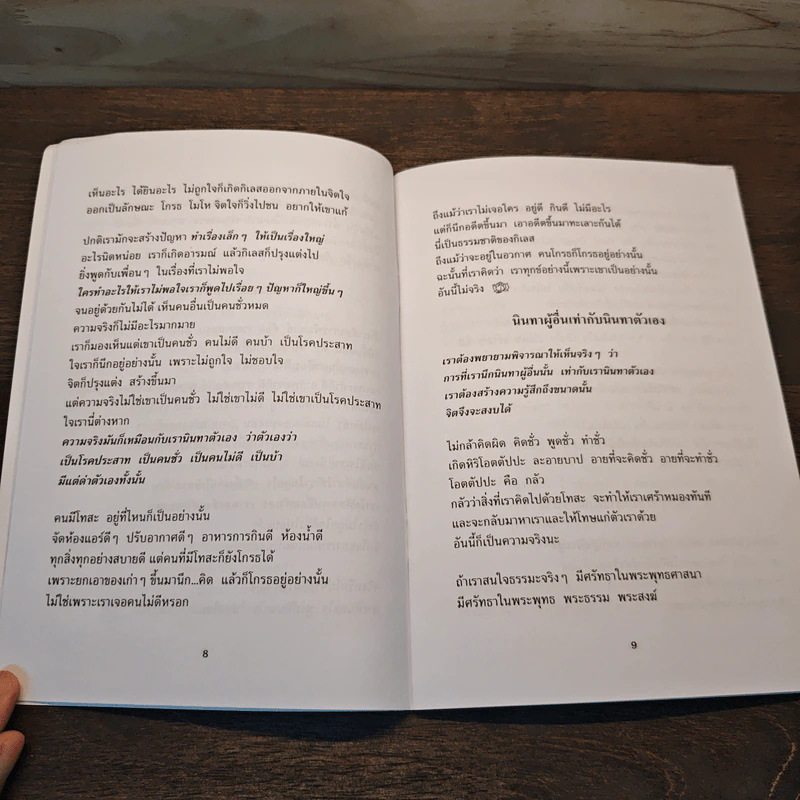 เห็นอะไร ได้ยินอะไร ไม่ถูกใจก็เกิดกิเลสออกจากภายในจิตใจ
ออกเป็นลักษณะ โกรธ โมโห จิตใจก็วิ่งไปชน อยากให้เขาแก้
ปกติเรามักจะสร้างปัญหา ทำเรื่องเล็กๆ ให้เป็นเรื่องใหญ่
อะไรนิดหน่อย เราก็เกิดอารมณ์ แล้วกิเลสก็ปรุงแต่งไป
ยิ่งพูดกับเพื่อนๆ ในเรื่องที่เราไม่พอใจ
ใครทำอะไรให้เราไม่พอใจเราก็พูดไปเรื่อยๆ ปัญหาก็ใหญ่ขึ้นๆ
จนอยู่ด้วยกันไม่ได้ เห็นคนอื่นเป็นคนชั่วหมด
ความจริงก็ไม่มีอะไรมากมาย
เราก็มองเห็นแต่เขาเป็นคนชั่ว คนไม่ดี คนบ้า เป็นโรคประสาท
ใจเราก็นึกอยู่อย่างนั้น เพราะไม่ถูกใจ ไม่ชอบใจ
จิตก็ปรุงแต่ง สร้างขึ้นมา
แต่ความจริงไม่ใช่เขาเป็นคนชั่ว ไม่ใช่เขาไม่ดี ไม่ใช่เขาเป็นโรคประสาท
ใจเรานี่ต่างหาก
ความจริงมันก็เหมือนกับเรานินทาตัวเอง ว่าตัวเองว่า
เป็นโรคประสาท เป็นคนชั่ว เป็นคนไม่ดี เป็นบ้า
มีแต่ด่าตัวเองทั้งนั้น
คนมีโทสะ อยู่ที่ไหนก็เป็นอย่างนั้น
จัดห้องแอร์ดีๆ ปรับอากาศดีๆ อาหารการกินดี ห้องน้ำดี
ทุกสิ่งทุกอย่างสบายดี แต่คนที่มีโทสะก็ยังโกรธได้
เพราะยกเอาของเก่าๆ ขึ้นมานึก...คิด แล้วก็โกรธอยู่อย่างนั้น
ไม่ใช่เพราะเราเจอคนไม่ดีหรอก
8
ถึงแม้ว่าเราไม่เจอใคร อยู่ดี กินดี ไม่มีอะไร
แต่ก็นึกอดีตขึ้นมา เอาอดีตขึ้นมาทะเลาะกันได้
นี่เป็นธรรมชาติของกิเลส
ถึงแม้ว่าจะอยู่ในอวกาศ คนโกรธก็โกรธอยู่อย่างนั้น
ฉะนั้นที่เราคิดว่า เราทุกข์อย่างนี้เพราะเขาเป็นอย่างนั้น
อันนี้ไม่จริง
นินทาผู้อื่นเท่ากับนินทาตัวเอง
เราต้องพยายามพิจารณาให้เห็นจริงๆ ว่า
การที่เรานึกนินทาผู้อื่นนั้น เท่ากับเรานินทาตัวเอง
เราต้องสร้างความรู้สึกถึงขนาดนั้น
จิตจึงจะสงบได้
ไม่กล้าคิดผิด คิดชั่ว พูดชั่ว ทำชั่ว
เกิดหิริโอตตัปปะ ละอายบาป อายที่จะคิดชั่ว อายที่จะทำชั่ว
โอตตัปปะ คือ กลัว
กลัวว่าสิ่งที่เราคิดไปด้วยโทสะ จะทำให้เราเศร้าหมองทันที
และจะกลับมาหาเราและให้โทษแก่ตัวเราด้วย
อันนี้ก็เป็นความจริงนะ
ถ้าเราสนใจธรรมะจริงๆ มีศรัทธาในพระพุทธศาสนา
มีศรัทธาในพระพุทธ พระธรรม พระสงฆ์
9